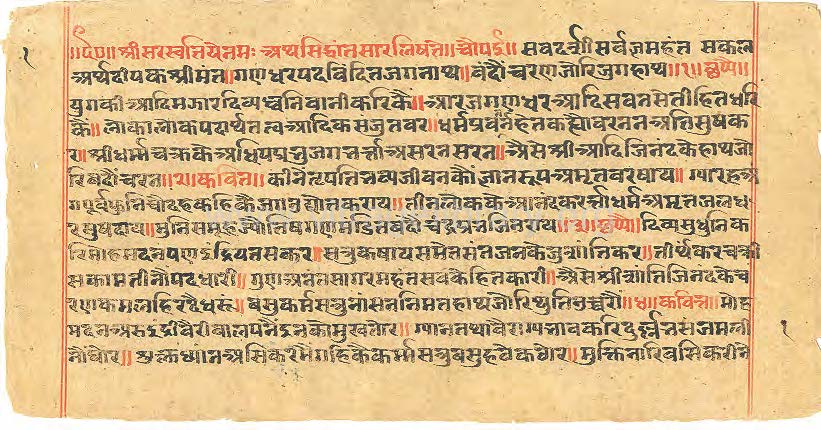 १
॥ए६०॥श्रीसरस्वत्यैनमः अथसिद्धांतसारलिष्यते॥चौपई॥ सवदर्शीसर्वज्ञमहंत सकल
अर्थदीपकश्रीमंत॥गणधरपदवंदितजगनाथ॥बंदौंचरणजोरिजुगहाथ॥१॥छप्पै॥
युगकीआदिमझारदिव्यध्वनिवानीकरिकैं॥आरजगणधरआदिसवनसेतीहितधरि
कैं॥लोकालोकपदार्थतत्वआदिकसंजुतवर॥धर्मप्रवर्तनहेतकह्योवरननअतिसुषक
र॥श्रीधर्मचक्रकेअधिपप्रभुजगभर्त्ताअसरनसरन॥अैसेश्रीआदिजिनंदकेहाथजो
रिबंदौंचरन॥२॥कवित॥कीनैतृपतिभव्यजीवनकौंज्ञानरूपअमृतवरषाय॥ग्यारहअं
गपूर्वफुनिचौदहकहिकैंजगत
तीनलोककेआनंदकरर्त्ताधर्मअमृतजलध
रसुषदाय॥मुनिसमूहज्योतिषगणमंडितबंदौंचंद्रप्रभजिनराय॥३॥छप्पै॥दिव्यसुधुनिक
रिमोहमदनपणइंद्रियनसकर॥सत्रुकषायसमेतसंतजनकैजुशांतिकर॥तीर्थंकरचक्री
सकामतीनौंपदधारी॥गुणअनंतसागरमहंतसवकेहितकारी॥अैसेश्रीशांतिजिनंदकेच
रणकमलहिरदैधरूं॥वसुकर्मसत्रुनासननिमतहाथजोरिथुतिउच्चरौं॥४॥कवित॥मोह
मदनअरुइंद्रीवैरीवालपनैं
ग्यानतथावैराग्यभावकरिदुर्द्धर
शुक्लध्यानअसिकरमैंगहिकैकर्मसत्रु
मुक्तिनारिवसिकरीनै
१